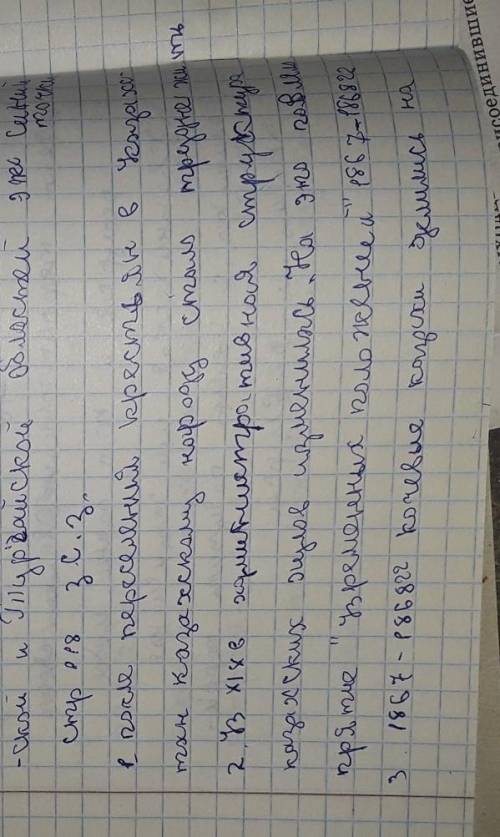 -ской и Тургайской областей это синий
точки
стр 118 з с. 3.
1 после переселений крестьян в Казахс-
тан казахскому народу стало трудно жить
2. В XIX в административная структура
казахских аулов изменилась. На это
прятие "Временных положений" 1867-1868гг
3. 1867-1868гг кочевые казахи делились на